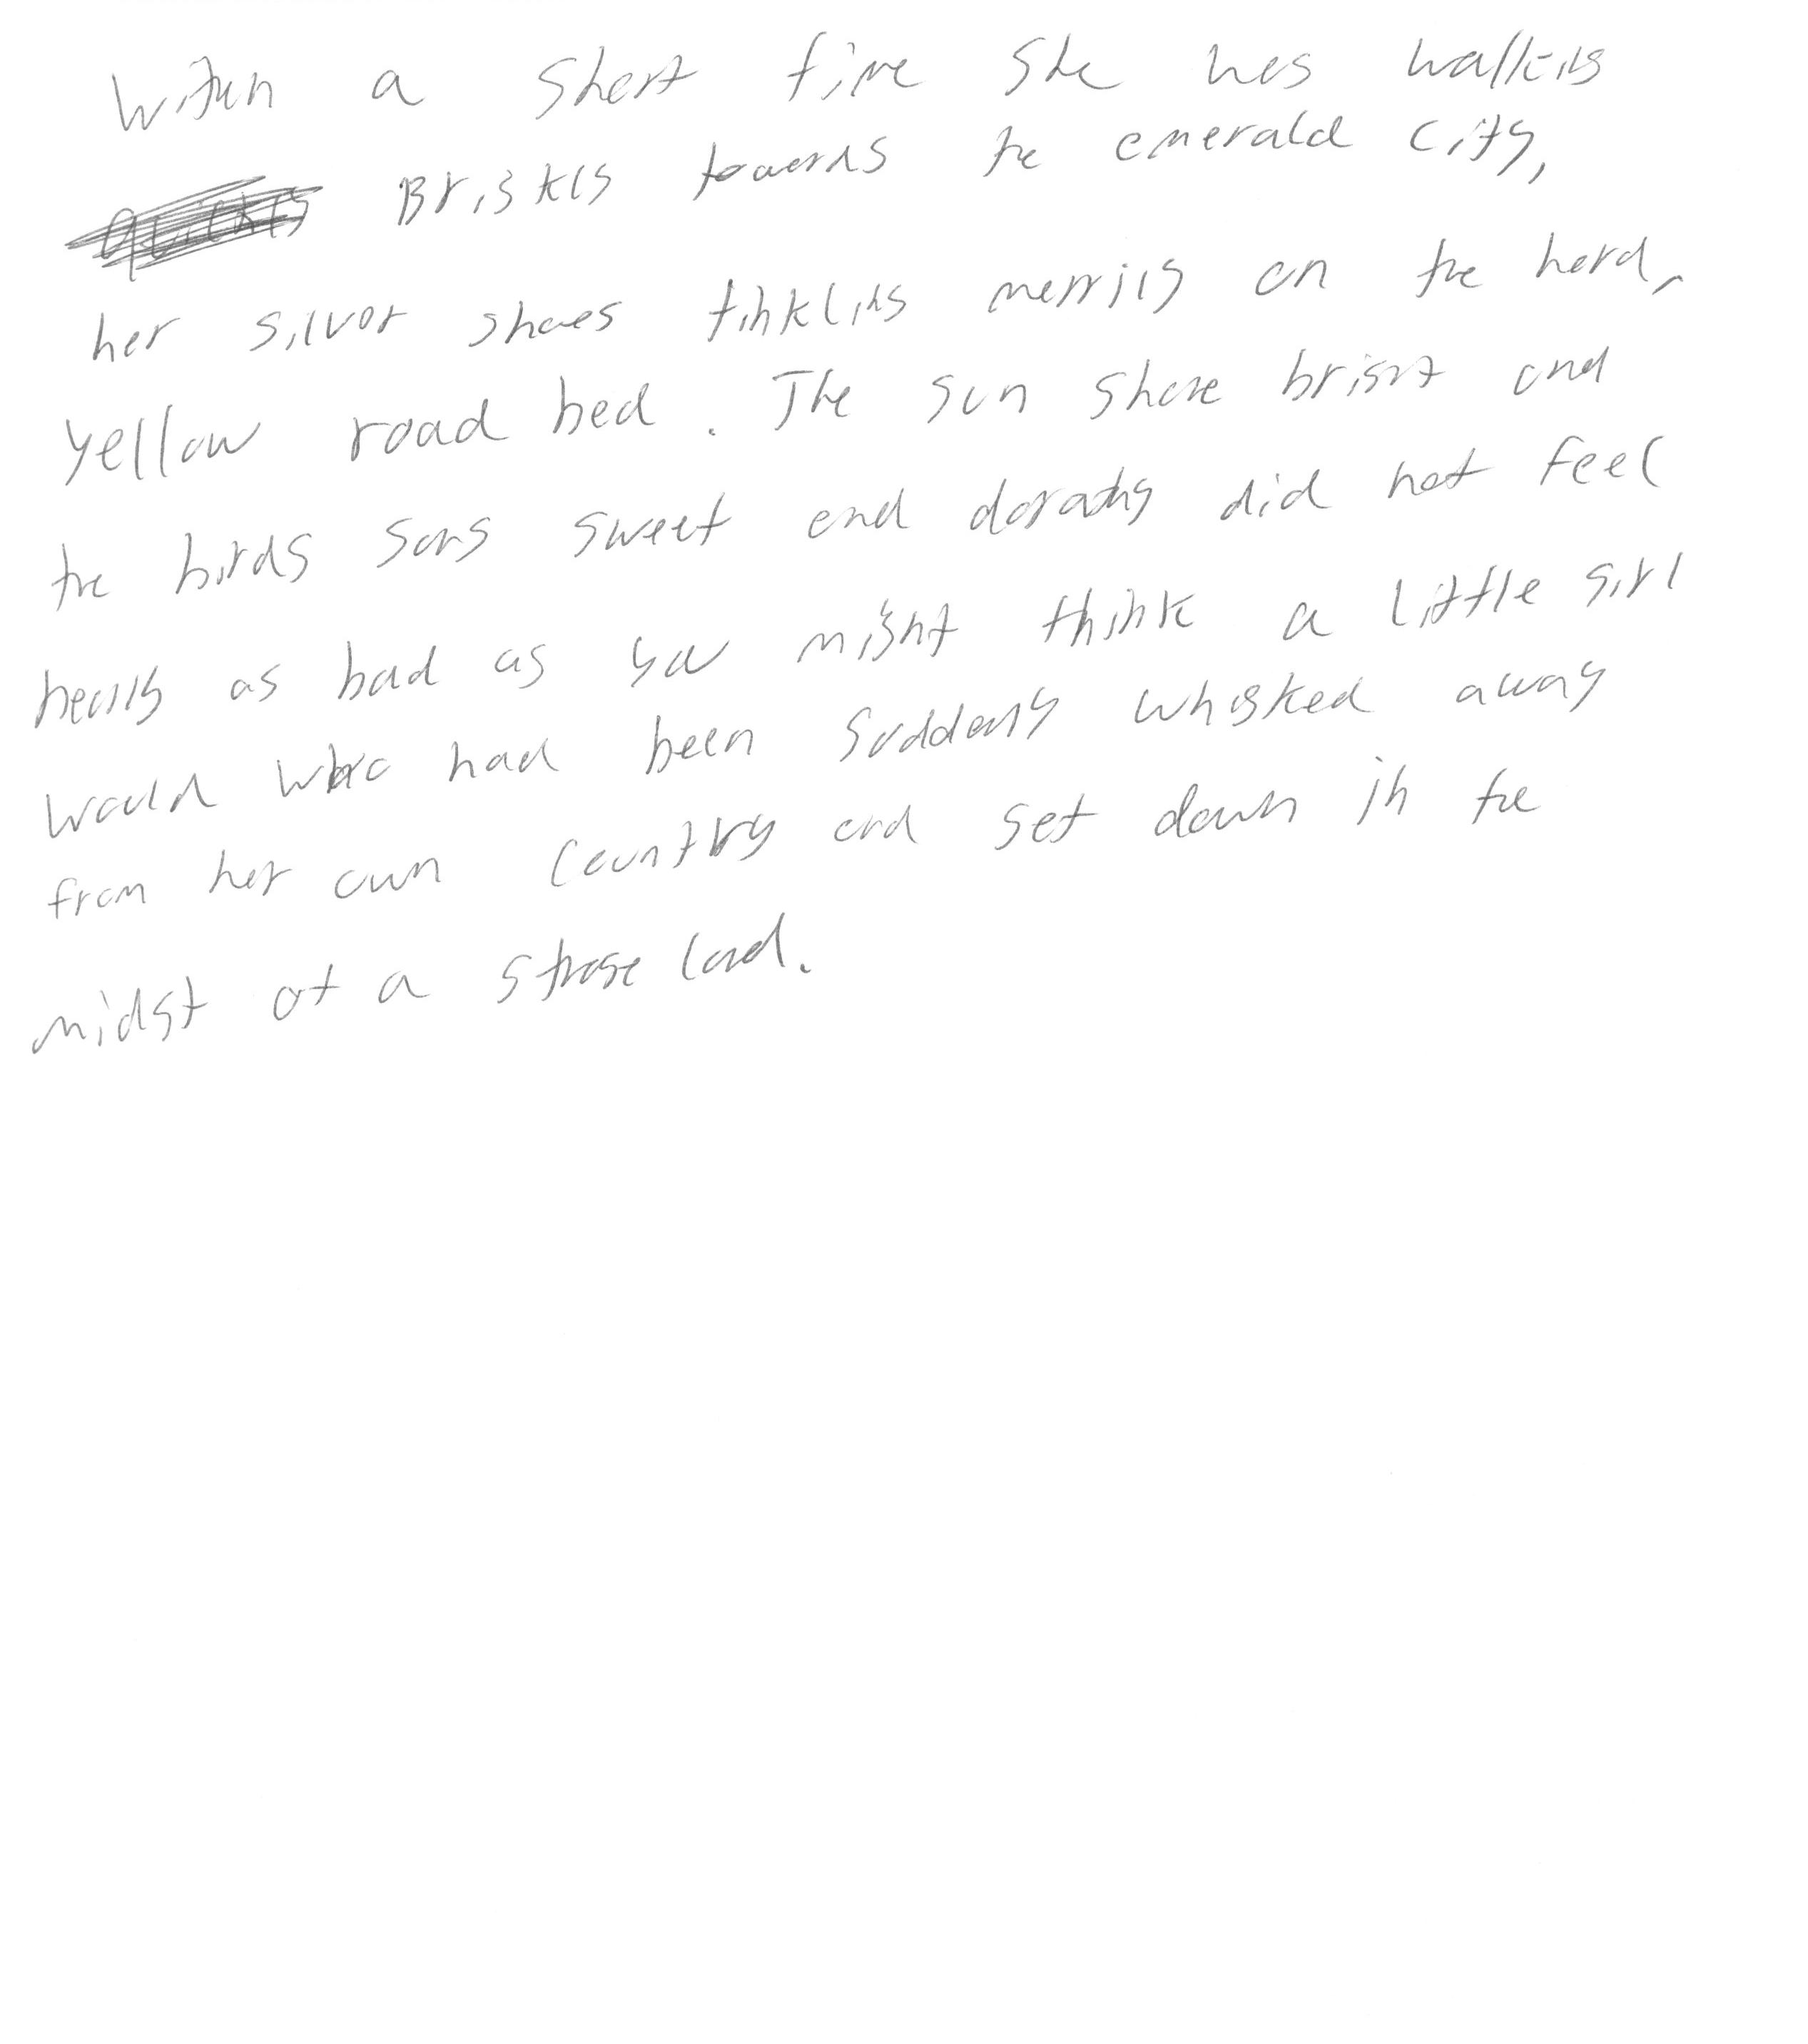 Within a short time she was walking
Briskly towards the emerald city,
her silver shoes tinkling merrily on the hard,
yellow road bed. The sun shone bright and
the birds sang sweet and dorothy did not feel
nearly as bad as you might think a little girl
would who had been suddenly whisked away
from her own country and set down in the
midst of a strange land.